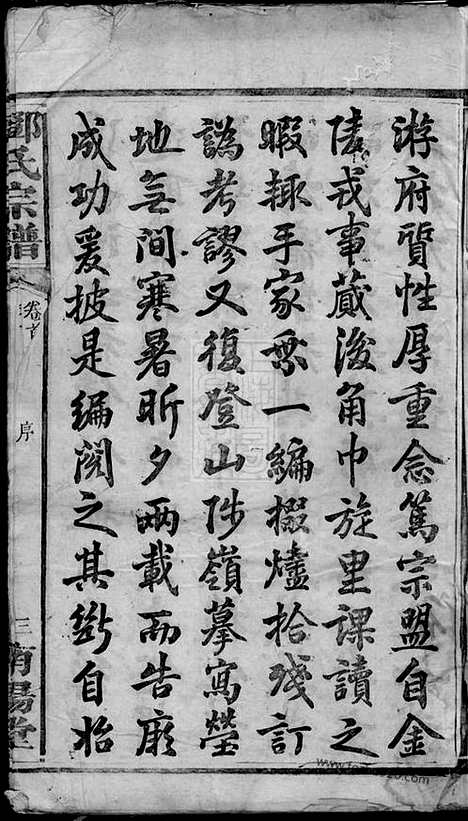 游府質性厚重念篤宗盟自金
陵戎事蕆後角巾旋里課讀之
暇輒手家乘一編掇燼拾殘訂
譌考謬又復登山陟嶺摹寫塋
地無間寒暑昕夕兩載而告厥
成功爰披是編閱之其斷自始
鄧氏宗譜
卷首
序
三
南陽堂